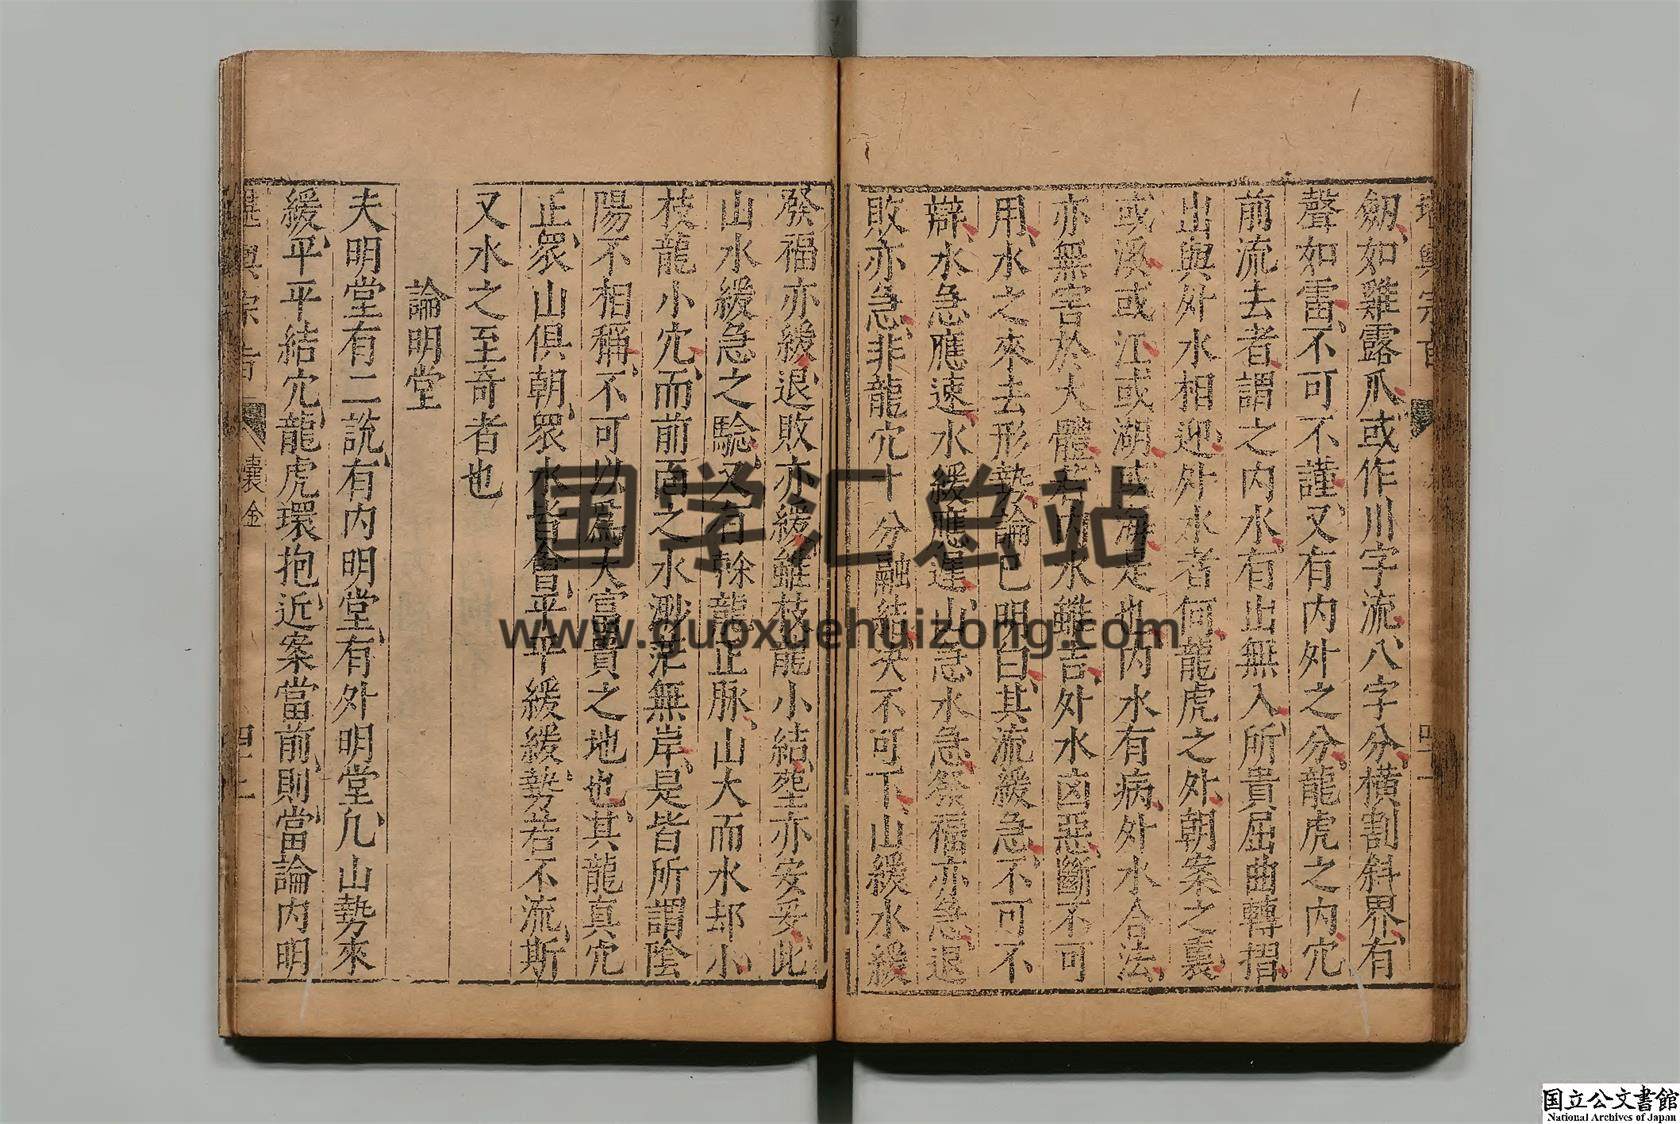 劒如雞露爪或作川字流八字分橫割斜界有
聲如雷不可不謹又有内外之分龍虎之内穴
前流去者謂之内水有出無入所貴屈曲轉摺
出與外水相迎外水者何龍虎之外朝案之裏
或溪或江或湖或海是也内水有病外水合法
亦無害於大體若内水雖吉外水凶惡斷不可
用水之來去形勢論已明白其流緩急不可不
辯水急應速水緩應遲山急水急發福亦急退
敗亦急非龍穴十分融結決不可下山緩水緩
發福亦緩退敗亦緩雖枝龍小結塟亦安妥此
山水緩急之驗又有幹龍正脉山大而水却小
枝龍小穴而前面之水渺茫無岸是皆所謂陰
陽不相稱不可以爲大富貴之地也其龍真穴
正衆山俱朝衆水皆會平平緩緩勢若不流斯
又水之至奇者也
論明堂
夫明堂有二説有内明堂有外明堂凡山勢來
緩平平結穴龍虎環抱近案當前則當論内明
囊金
国学汇总站
www.guoxuehuizong.com
国立公文書館
National Archives of Japan